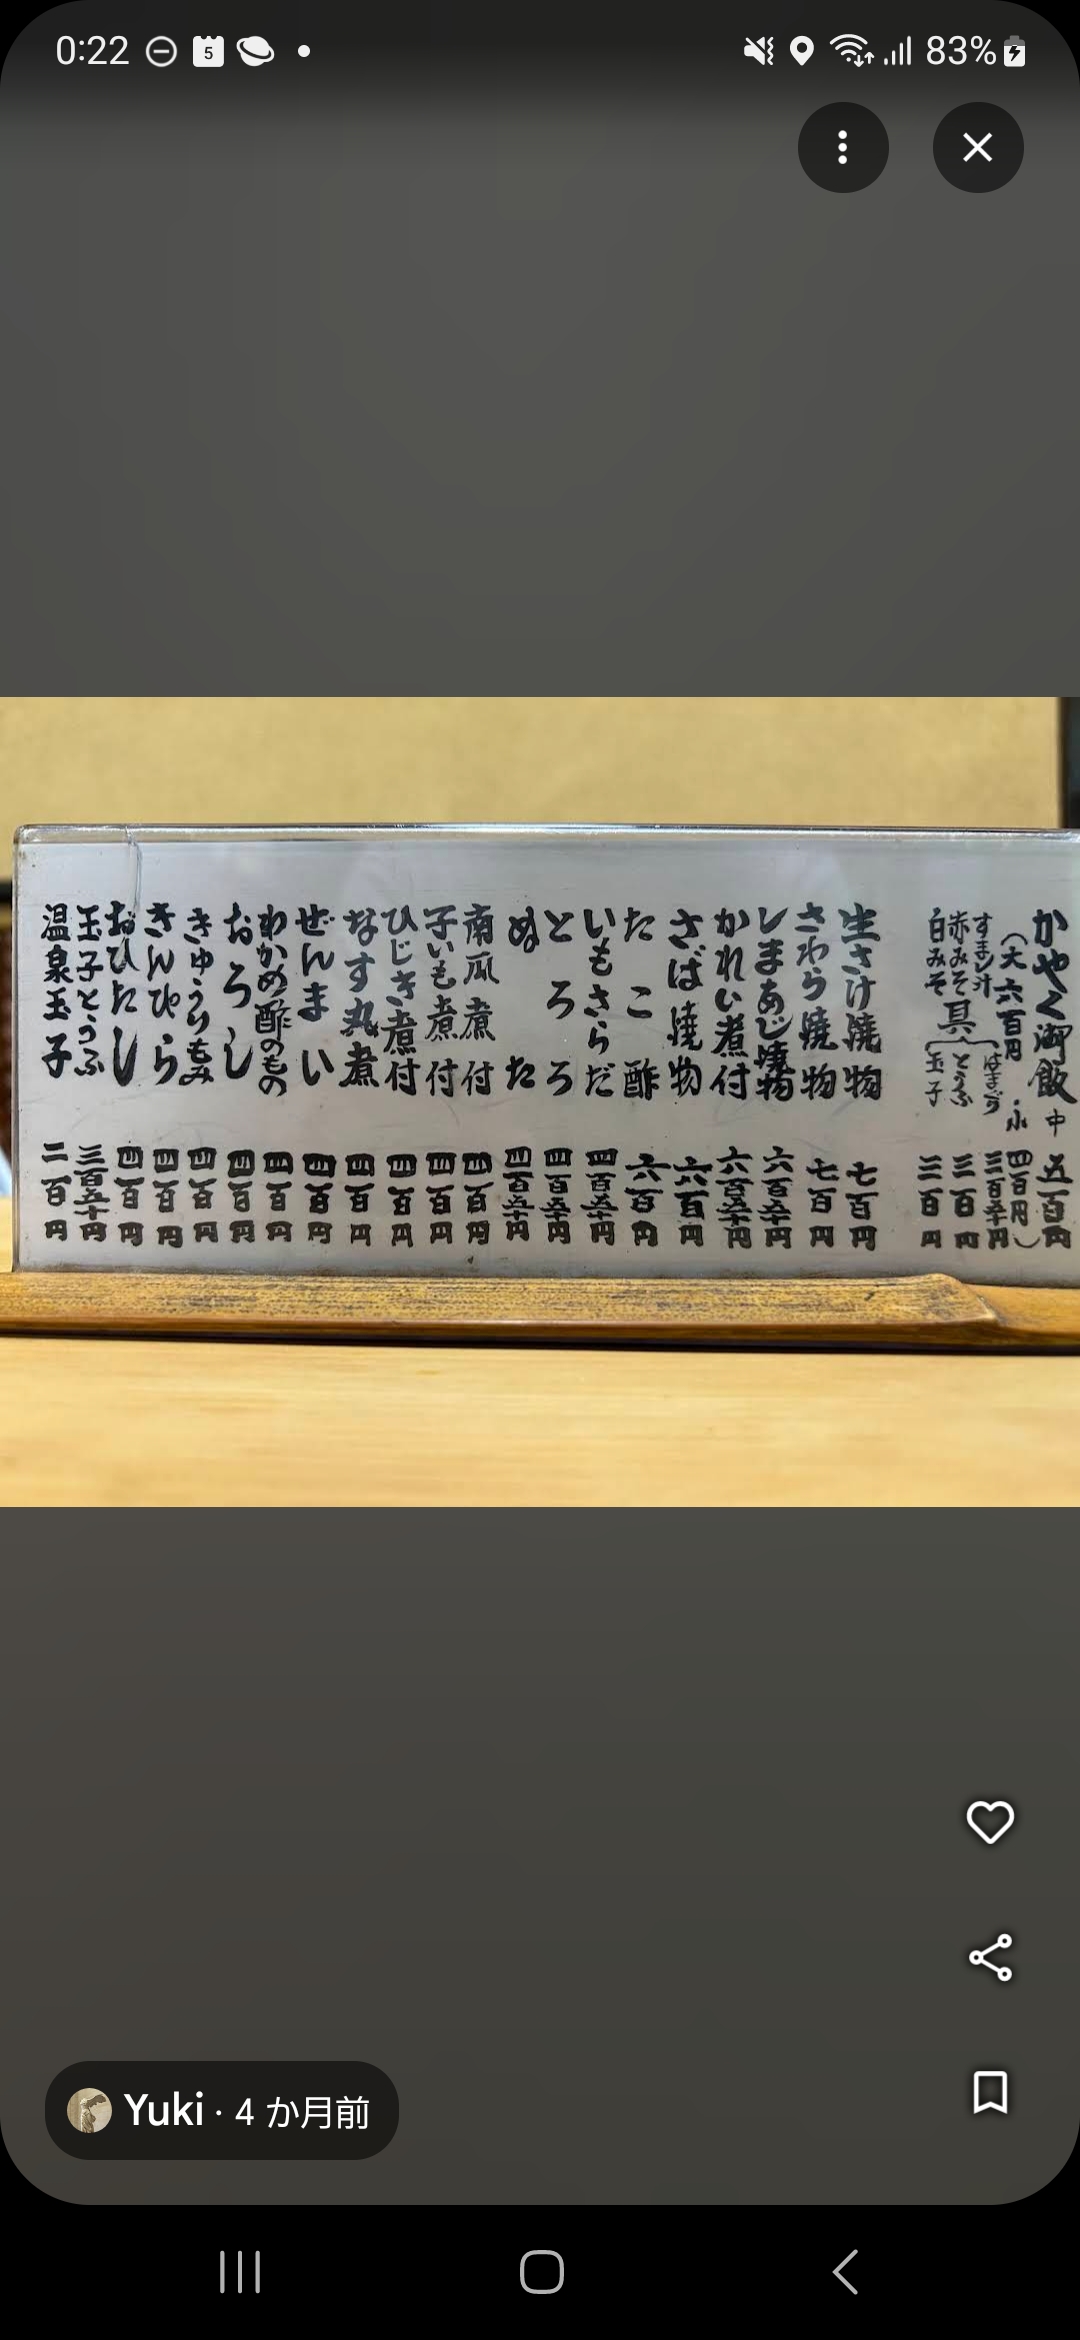 0:22
5
83%
かやく御飯 中 五百円
(大 六百円 小 四百円)
すまし汁 三百五十円
赤みそ 三百円
白みそ 三百円
具
はまぐり
とうふ
玉子
生さけ焼物 七百円
さわら焼物 七百円
しまあじ焼物 六百五十円
かれい煮付 六百五十円
さば焼物 六百円
たこ酢 六百円
いもさらだ 四百五十円
とろろ 四百五十円
ぬた 四百五十円
南瓜煮付 四百円
子いも煮付 四百円
ひじき煮付 四百円
なす丸煮 四百円
ぜんまい 四百円
わかめ酢のもの 四百円
おろし 四百円
きゅうりもみ 四百円
きんぴら 四百円
おひたし 四百円
玉子とうふ 三百五十円
温泉玉子 二百円
Yuki · 4 か月前